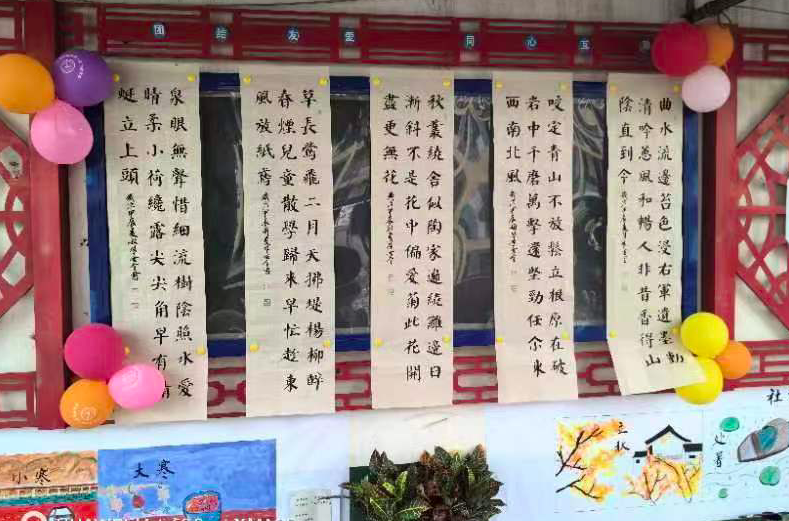 团结友爱
同心互
曲水流邊苔色浸右軍遺墨動
清吟蕙風和暢人非昔香得山
陰直到今
咬定青山不放鬆立根原在破
岩中千磨萬擊還堅勁任尒東
西南北風
秋叢繞舍似陶家遍繞籬邊日
漸斜不是花中偏愛菊此花開
盡更無花
草長鶯飛二月天拂堤楊柳醉
春煙兒童散學歸來早忙趁東
風放紙鳶
泉眼無聲惜細流樹陰照水愛
晴柔小荷纔露尖尖角早有
蜓立上頭
社
小寒
大寒
立秋
处暑